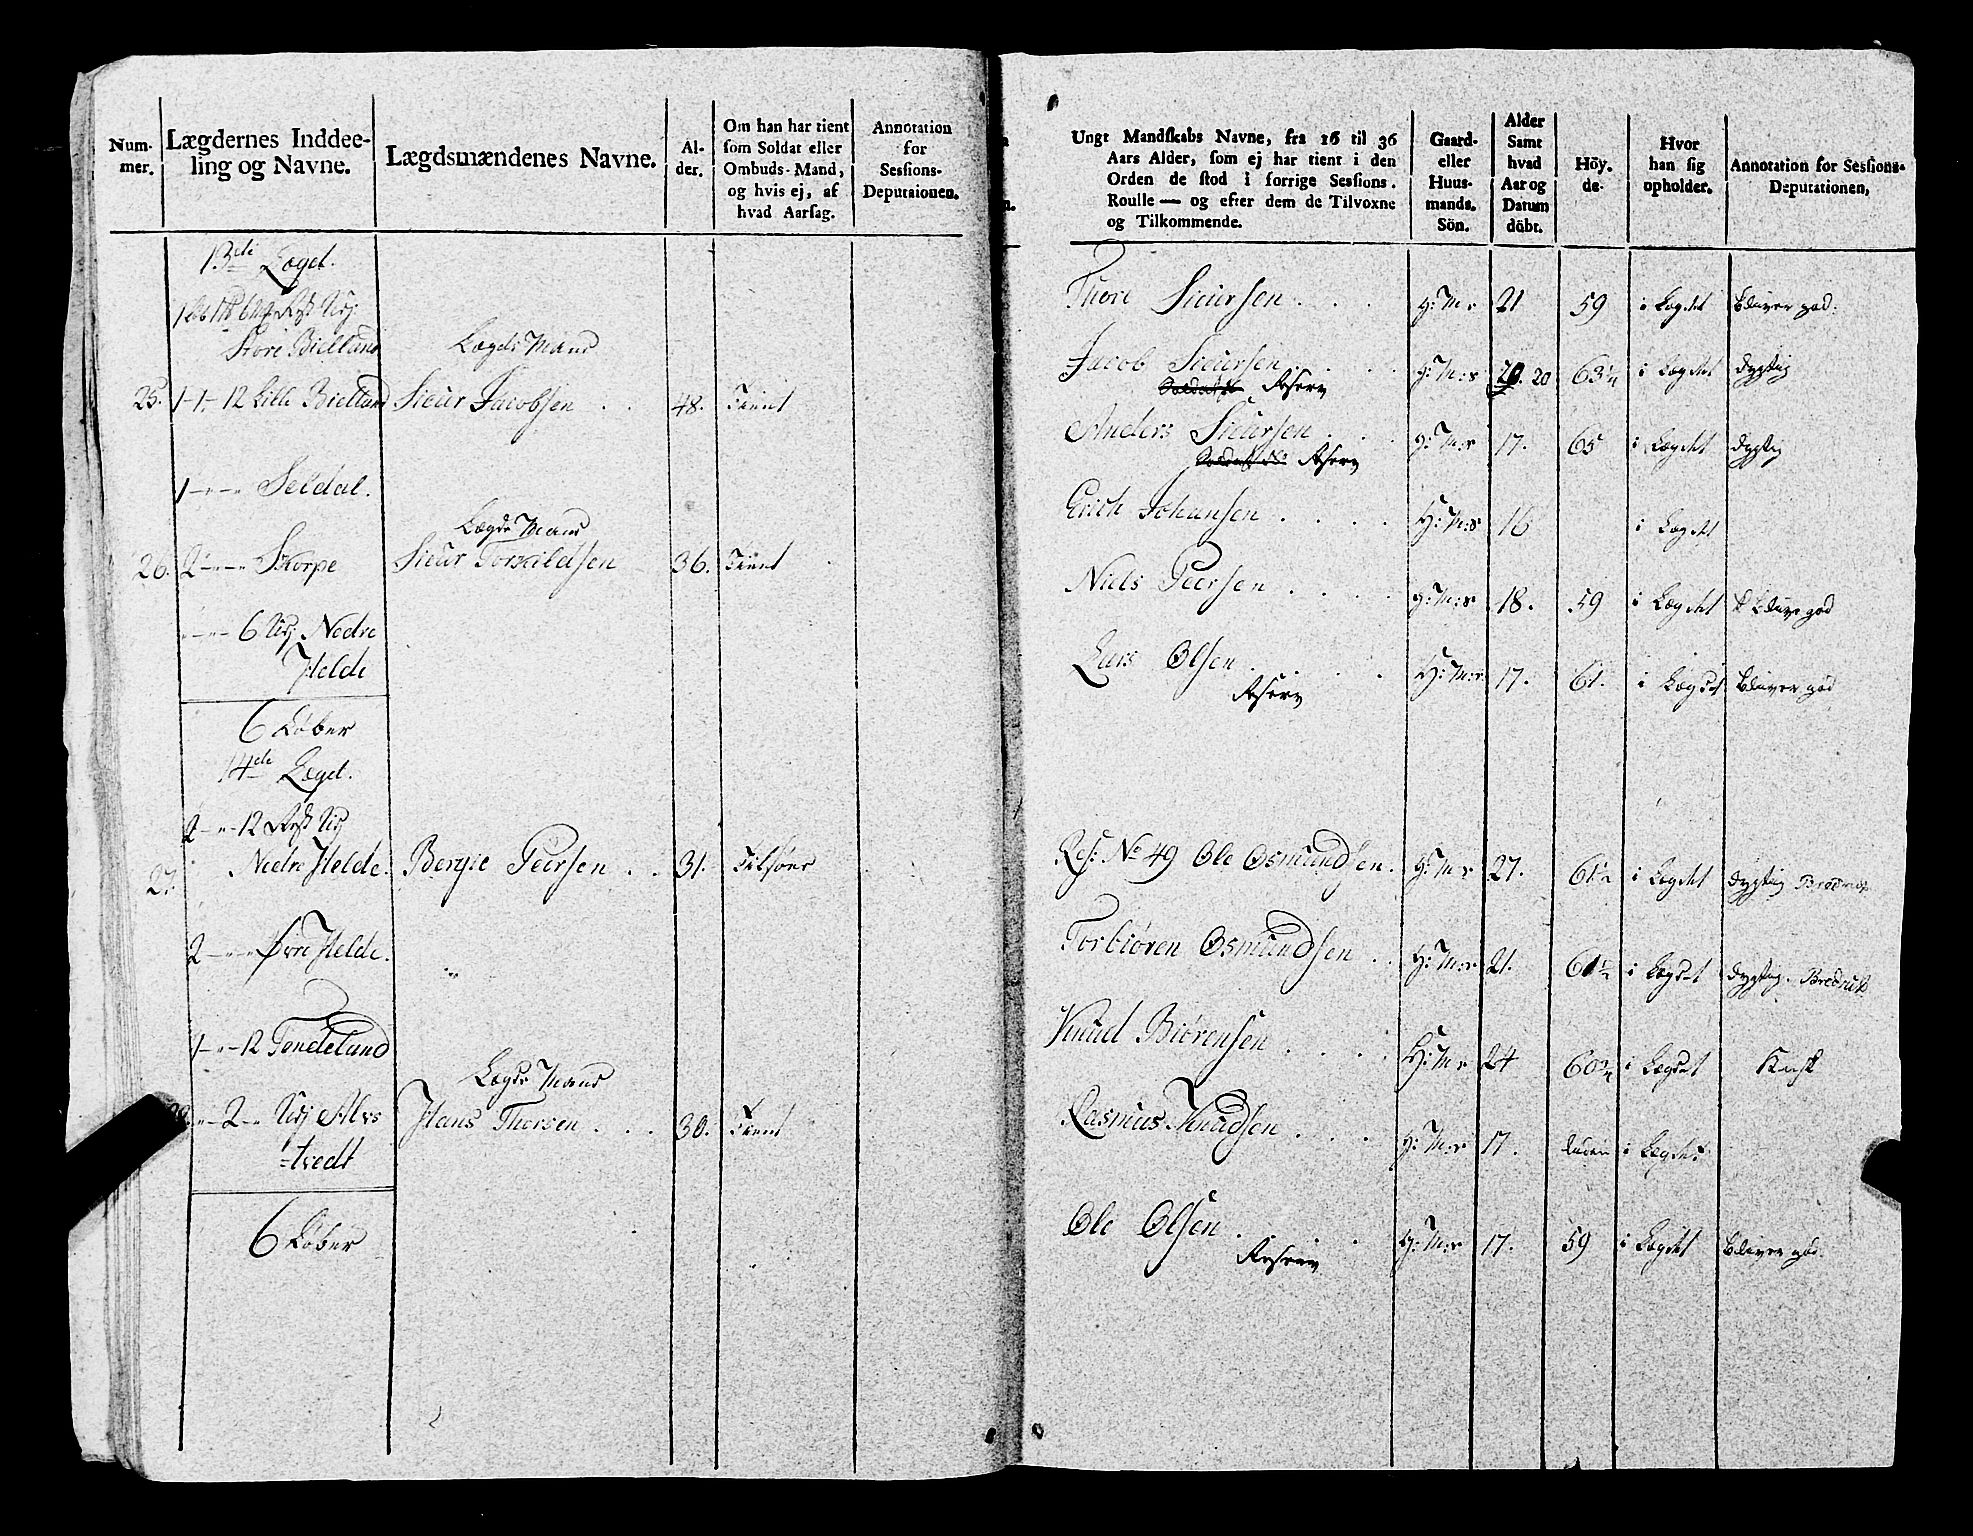 Num-
mer.
Lægdernes Inddee-
ling og Navne.
Lægdsmændenes Navne.
Al-
der.
Om han har tient
som Soldat eller
Ombuds-Mand,
og hvis ej, af
hvad Aarsag.
Annotation
for
Sessions-
Deputaionen.
13de Lægd.
Store Bielland
Lægds Mand
25. 1-1-12 Lille Bielland Sieur Jacobsen . . 48. Tient
1-"-" Seldal.
Lægds Mand
26. 2-"-" Skorpe Sieur Torkildsen 36. Tient
"-"-6 Udj Nedre
Helde
6 Løber
14de Lægd.
2-"-12 Rest Udj
27. Nedre Helde. Bergie Peersen . . 31. Tilføer
2-"-" Øvre Helde.
1-"-12 Tondeland
Lægds Mand
28. "-2-" Udj Alvs Hans Thorsen . . . 30. Tient
=tvedt
6 Løber
Ungt Mandskabs Navne, fra 16 til 36
Aars Alder, som ej har tient i den
Orden de stod i forrige Sessions-
Roulle — og efter dem de Tilvoxne
og Tilkommende.
Gaard-
eller
Huus-
mands.
Sön.
Alder
Samt
hvad
Aar og
Datum
döbt.
Höy.
de.
Hvor
han sig
opholder.
Annotation for Sessions-
Deputationen,
Thore Sieursen . . . g: M: s 21 59 i Lægdet bliver god.
Jacob Sieursen . . . . g: M: s 20. 20 63 1/4 i Lægdet dygtig
Reserv
Anders Sieursen . . . g: M: s 17. 65 i Lægdet dygtig
Reserv
Erich Johansen . . . . H: M: s 16 i Lægdet
Niels Peersen . . . . g: M: s 18. 59 i Lægdet bliver god
Lars Olsen . . . . H: M: s 17. 61. i Lægdet bliver god
Reserv
Res: No 49 Ole Osmundsen. g: M: s 27. 61 1/2 i Lægdet dygtig
Torbiøren Osmundsen . . H: M: s 21. 61 1/2 i Lægdet dygtig.
Knud Biørensen . . . . H: M: s 24 60 3/4 i Lægdet
Rasmus Knudsen . . . . g: M: s 17. i Lægdet
Ole Olsen . . . H: M: s 17. 59 i Lægdet bliver god.
Reserv